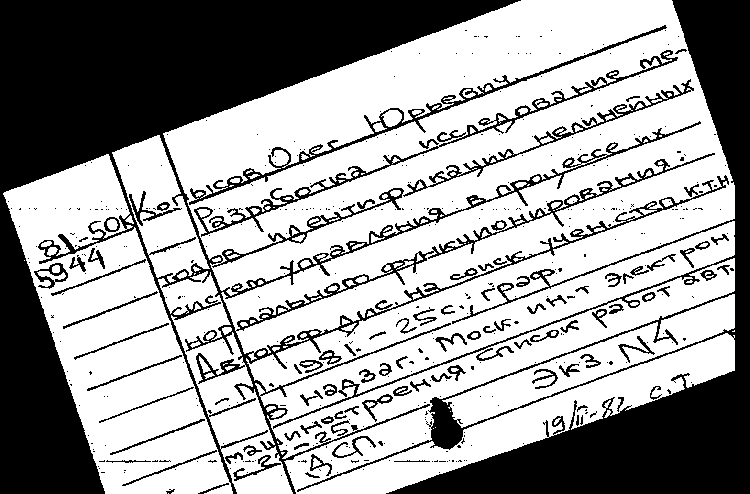 81-50к
5944
Копысов, Олег Юрьевич.
Разработка и исследование ме-
тодов идентификации нелинейных
систем управления в процессе их
нормального функционирования:
Автореф. дис. на соиск. учен. степ. к.т.н.
.-М., 1981.-25с.; граф.
В надзаг.: Моск. ин-т электрон.
машиностроения. Список работ авт.
с.22-25.
Экз. N4.
ДСП.
19/II-82 с.т.